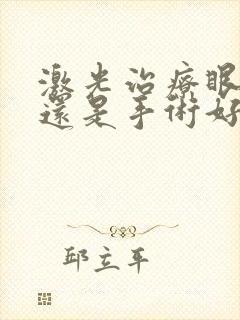 激光治療眼
還是手術好
邱立平